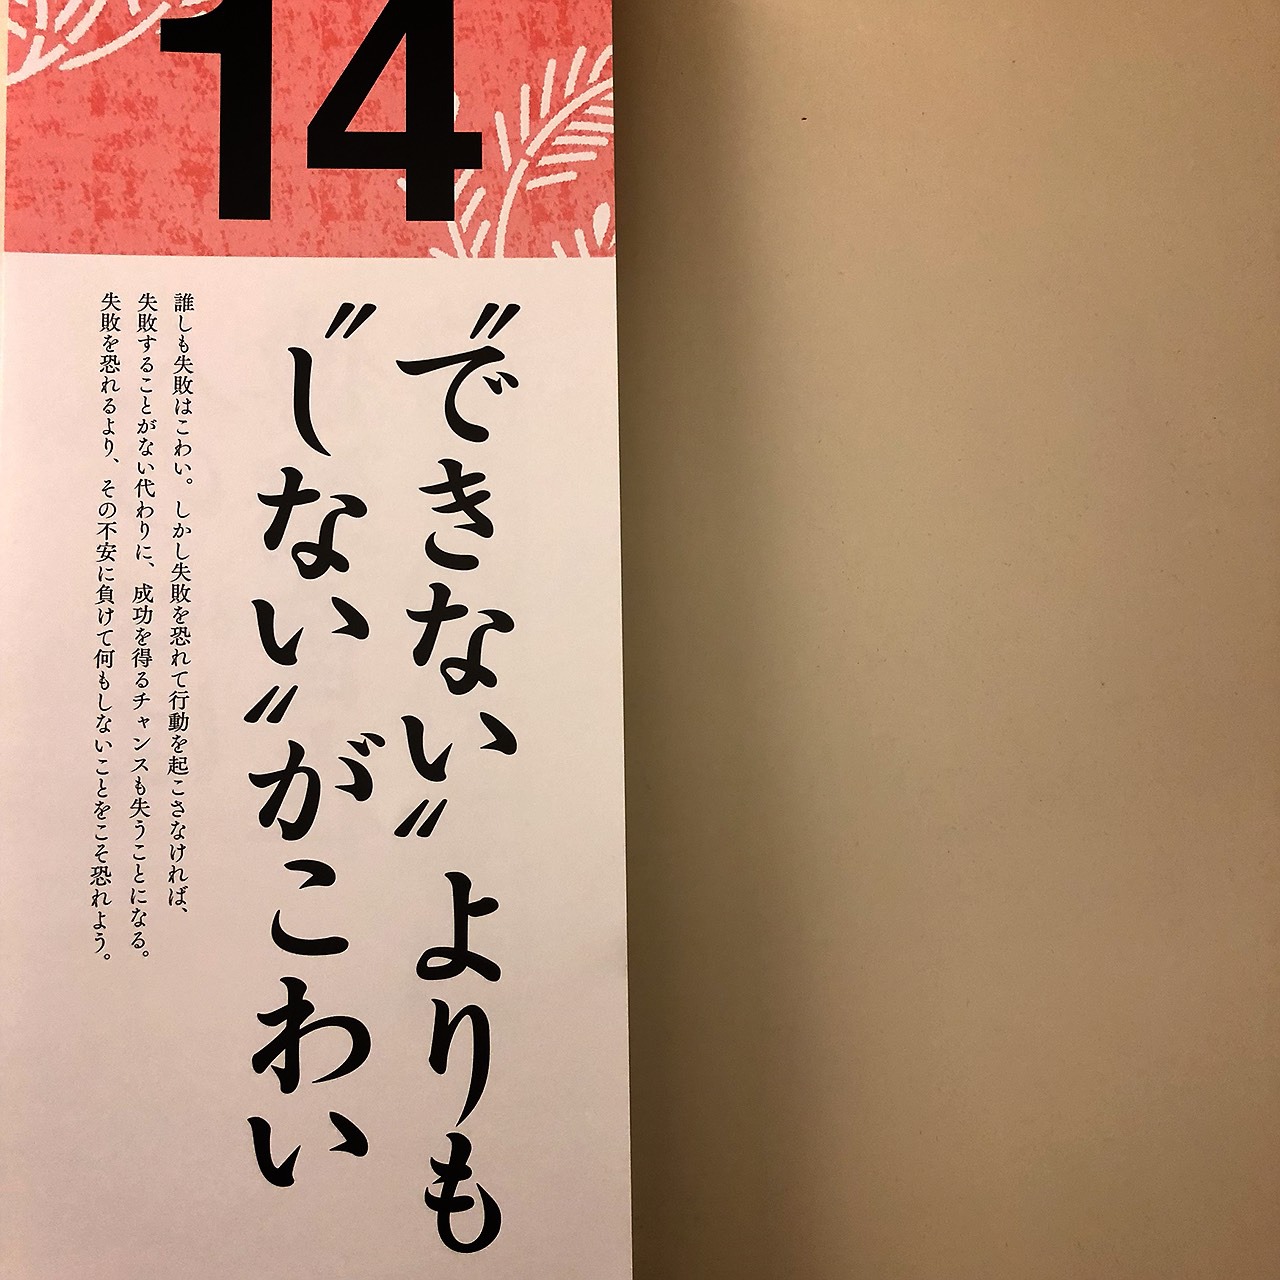 14
〝できない〟よりも
〝しない〟がこわい
誰しも失敗はこわい。しかし失敗を恐れて行動を起こさなければ、
失敗することがない代わりに、成功を得るチャンスも失うことになる。
失敗を恐れるより、その不安に負けて何もしないことをこそ恐れよう。